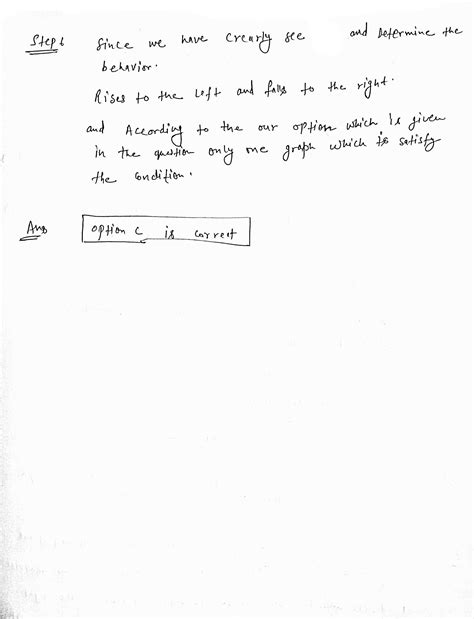 Step 6 Since we have Crearly see and Determine the
behavior.
Rises to the Left and falls to the right.
and According to the our option which Is given
in the question only one graph which is satisfy
the Condition.
Ans option C is correct